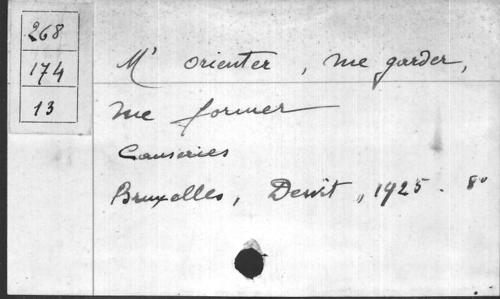 268
174
13
M' orienter, me garder,
me former
Causeries
Bruxelles, Dewit, 1925. 8°